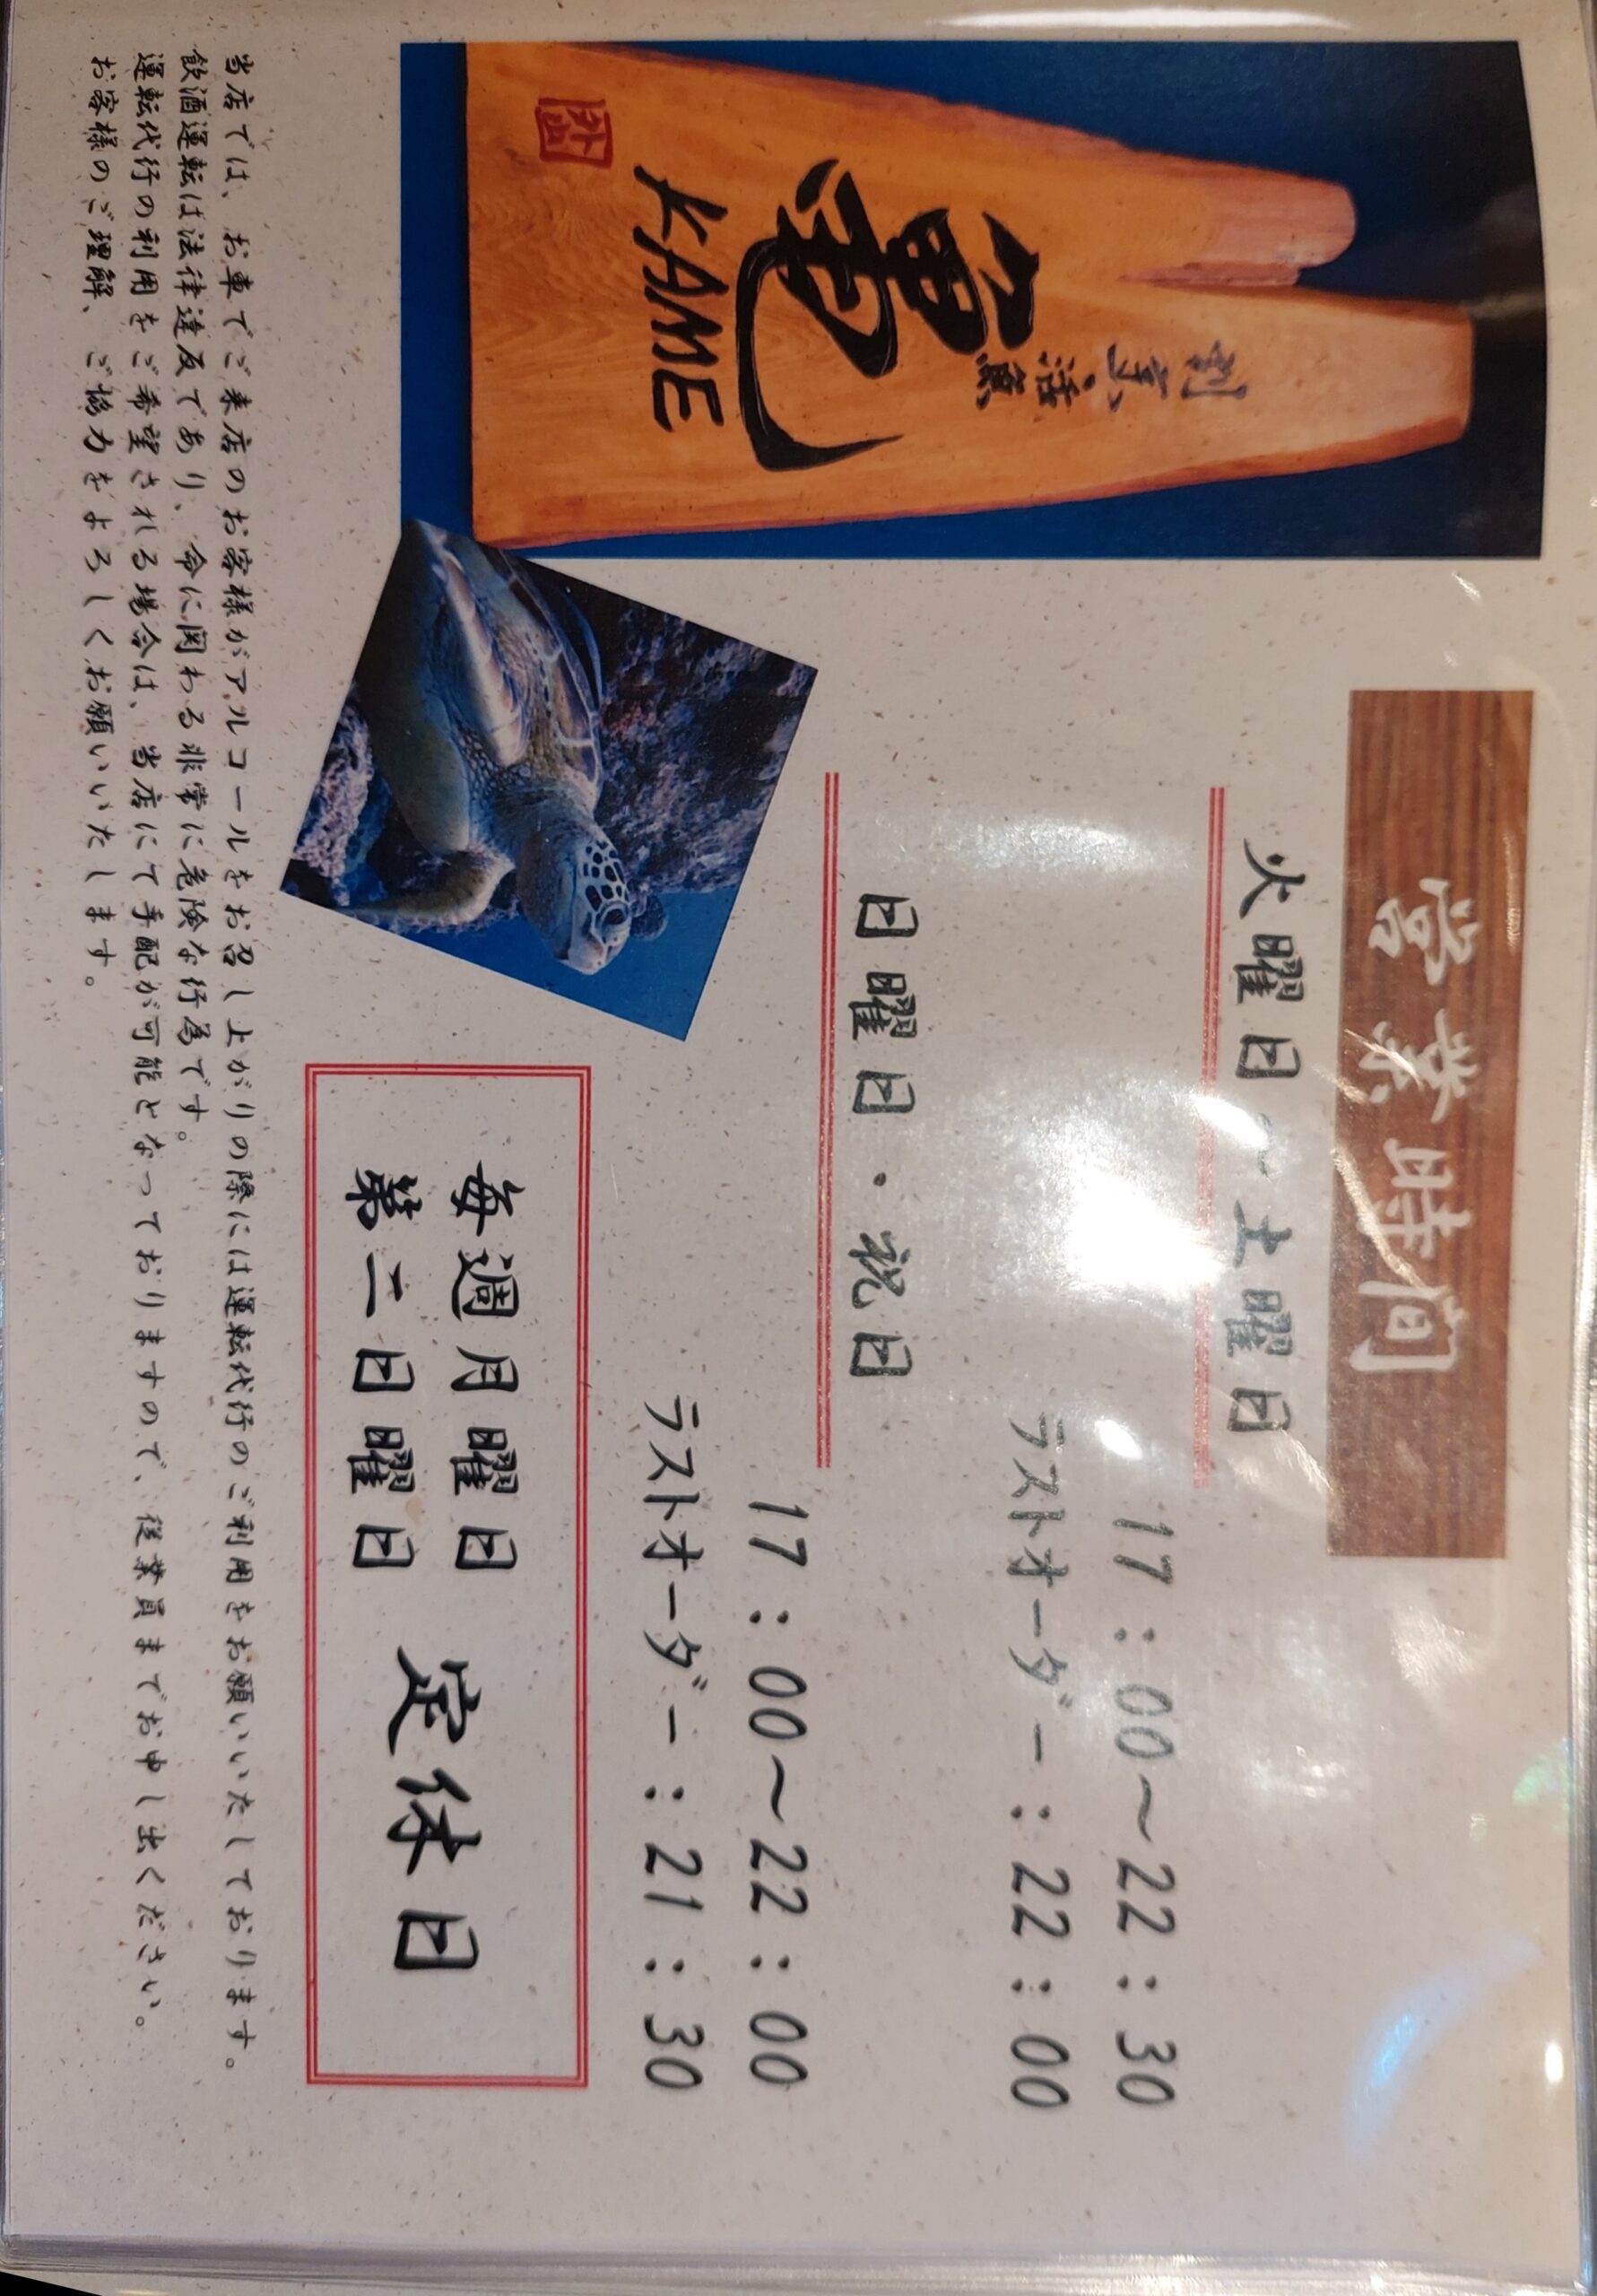 割烹・活魚
亀
KAME
営業時間
火曜日～土曜日
17：00～22：30
ラストオーダー：22：00
日曜日・祝日
17：00～22：00
ラストオーダー：21：30
毎週月曜日
第二日曜日
定休日
当店では、お車でご来店のお客様がアルコールをお召し上がりの際には運転代行のご利用をお願いいたしております。
飲酒運転は法律違反であり、命に関わる非常に危険な行為です。
運転代行の利用をご希望される場合は、当店にて手配が可能となっておりますので、従業員までお申し出ください。
お客様のご理解、ご協力をよろしくお願いいたします。